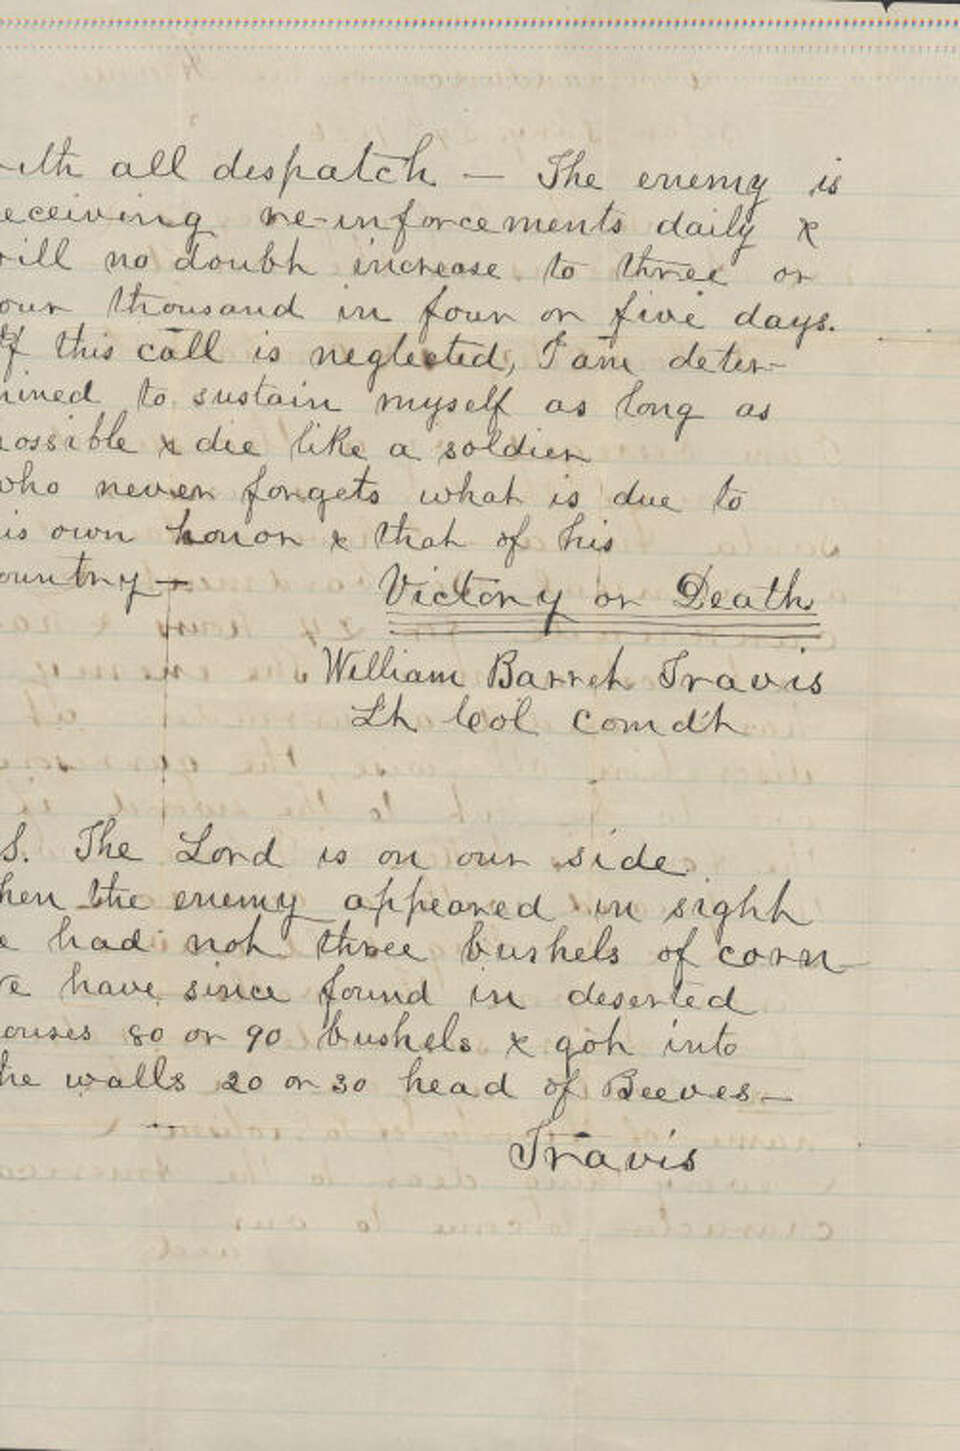 ith all despatch — The enemy is
eceiving re-inforcements daily &
ill no doubt increase to three or
our thousand in four or five days.
If this call is neglected, I am deter-
mined to sustain myself as long as
possible & die like a soldier
who never forgets what is due to
is own honor & that of his
ountry — Victory or Death
William Barret Travis
Lt Col comdt
S. The Lord is on our side.
hen the enemy appeared in sight
e had not three bushels of corn
e have since found in deserted
ouses 80 or 90 bushels & got into
he walls 20 or 30 head of Beeves —
Travis